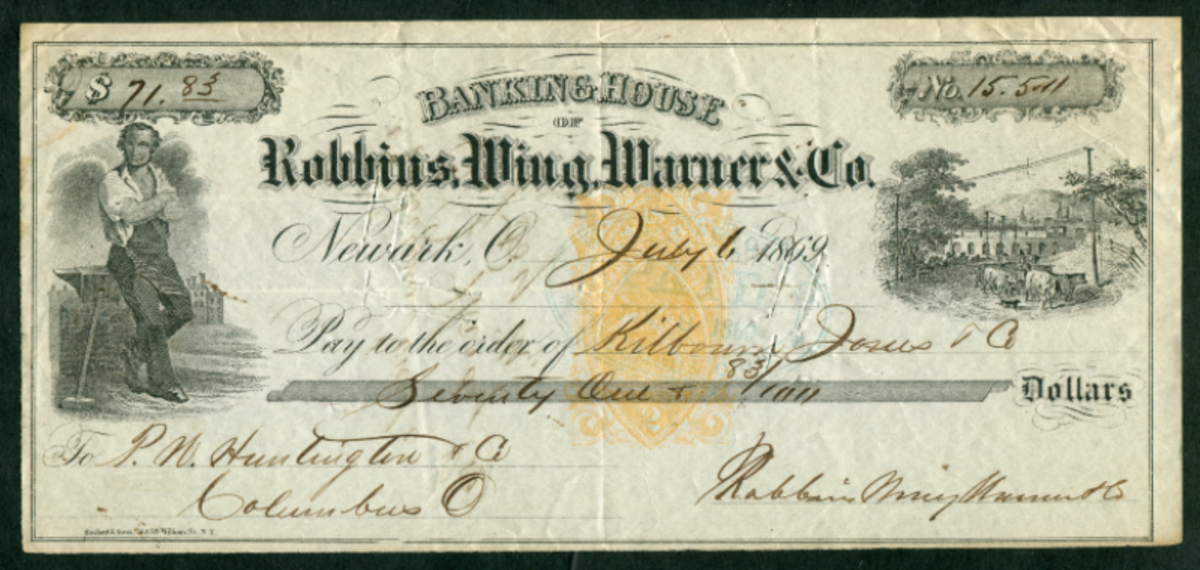 $ 71.83
No. 15.511
BANKING HOUSE
OF
Robbins, Wing, Warner & Co.
Newark, O. July 6 1869
Pay to the order of Kilbourn Jones & Co
Seventy One & 83/100 Dollars
To P. W. Huntington & Co
Columbus O
Robbins Wing Warner & Co
William St. N.Y.